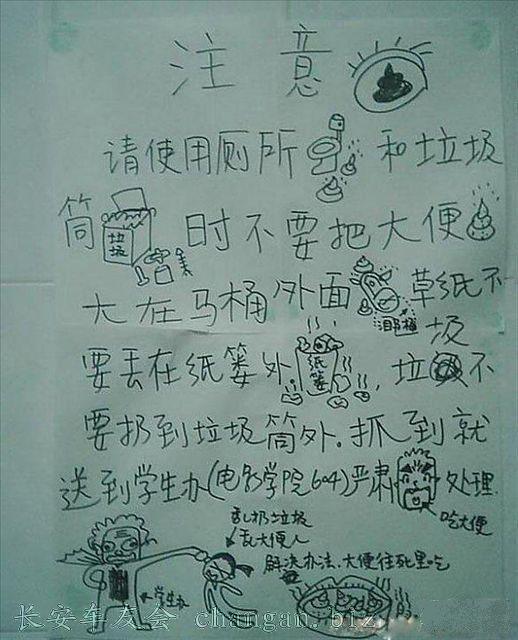 注意
请使用厕所和垃圾
筒时不要把大便
垃圾
大在马桶外面草纸不
要丢在纸篓外.垃圾不
纸篓
要扔到垃圾筒外.抓到就
送到学生办(电影学院604)严肃处理
吃大便
乱扔垃圾
乱大便人
解决办法、大便往死里吃
学生办
长安车友会 changan.biz